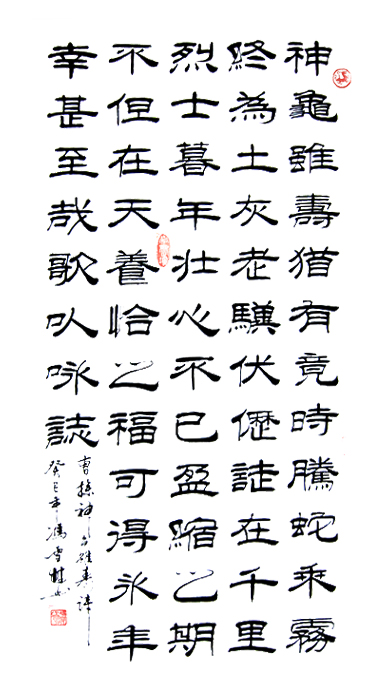 神龜雖壽猶有竟時騰蛇乘霧
終為土灰老驥伏櫪誌在千里
烈士暮年壯心不已盈縮之期
不但在天養怡之福可得永年
幸甚至哉歌以咏誌
曹操神龜雖壽詩
癸巳年馮雪